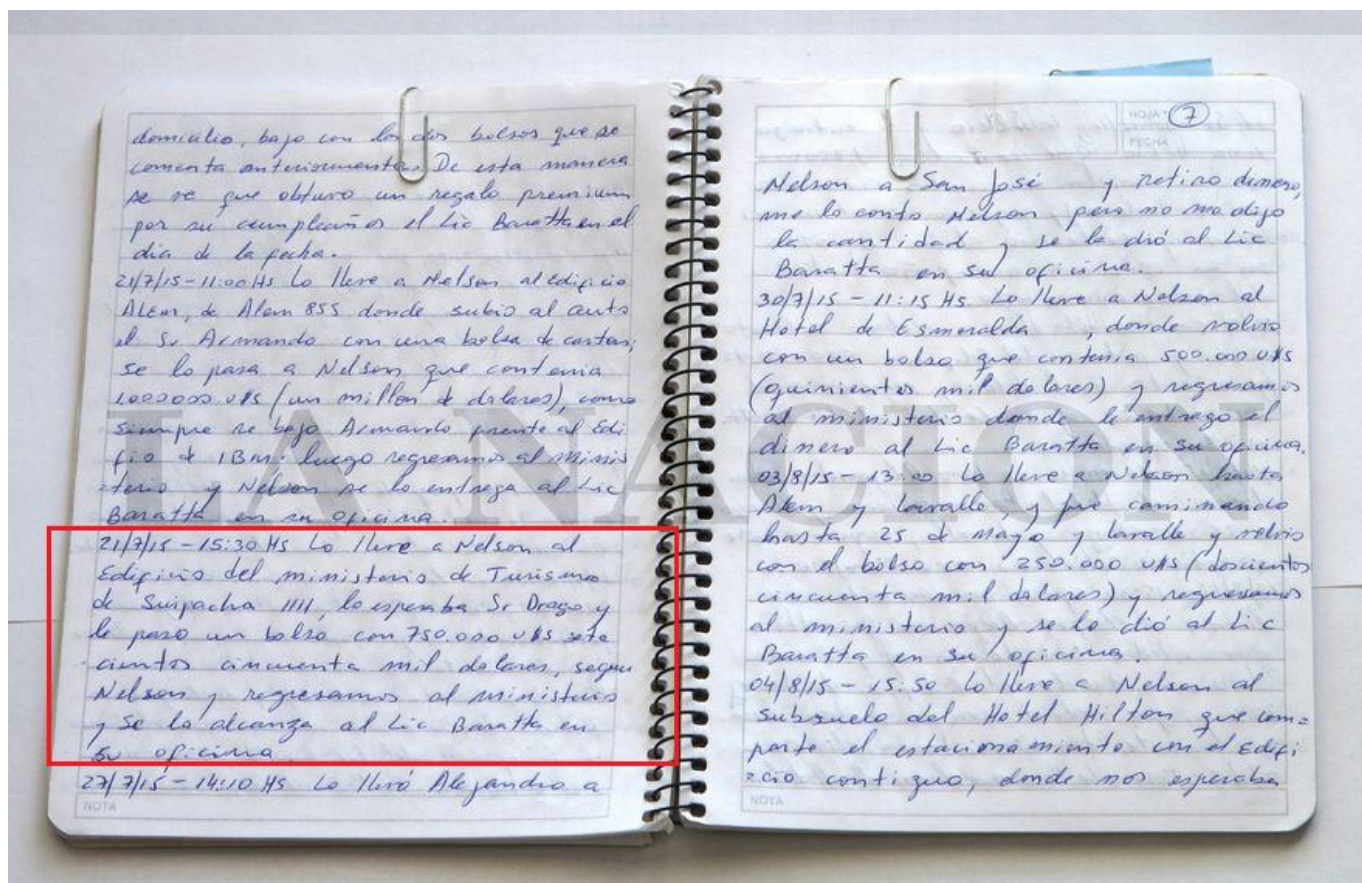 domicilio, bajo con los dos bolsos que se
comenta anteriormente. De esta manera
se ve que obtuvo un regalo premium
por su cumpleaños el Lic Baratta en el
dia de la fecha.
21/7/15-11:00 Hs Lo lleve a Nelson al Edificio
ALEM, de Alem 855 donde subio al auto
el Sr Armando con una bolsa de carton,
se lo pasa a Nelson que contenia
1000000 U$S (un millon de dolares), como
siempre se bajo Armando frente al Edi
ficio de IBM. luego regresamos al minis
terio y Nelson se lo entrega al Lic
Baratta en su oficina.
21/7/15-15:30 Hs Lo lleve a Nelson al
Edificio del ministerio de Turismo
de Suipacha 1111, lo esperaba Sr Drago y
le paso un bolso con 750.000 U$S sete
cientos cincuenta mil dolares, segun
Nelson y regresamos al ministerio
y se lo alcanza al Lic Baratta en
su oficina
27/7/15-14:10 Hs Lo llevó Alejandro a
NOTA
HOJA 7
FECHA
Nelson a San José y retiro dinero,
me lo conto Nelson pero no me dijo
la cantidad y se lo dió al Lic
Baratta en su oficina.
30/7/15-11:15 Hs Lo lleve a Nelson al
Hotel de Esmeralda , donde volvio
con un bolso que contenia 500.000 U$S
(quinientos mil dolares) y regresamos
al ministerio donde le entrego el
dinero al Lic Baratta en su oficina.
03/8/15-13:00 Lo lleve a Nelson hasta
Alem y Lavalle, y fue caminando
hasta 25 de Mayo y Lavalle y volvio
con el bolso con 250.000 U$S (doscientos
cincuenta mil dolares) y regresamos
al ministerio y se lo dió al Lic
Baratta en su oficina.
04/8/15-15:50 Lo lleve a Nelson al
subsuelo del Hotel Hilton que com=
parte el estacionamiento con el Edifi
=cio contiguo, donde nos esperaba
NOTA
LA NACION